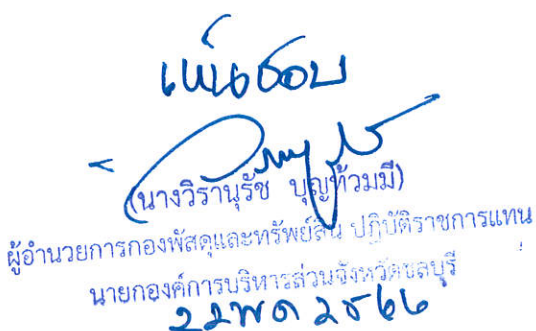 เห็นชอบ
(นางวิรานุรัช บุญท้วมมี)
ผู้อำนวยการกองพัสดุและทรัพย์สิน ปฏิบัติราชการแทน
นายกองค์การบริหารส่วนจังหวัดชลบุรี
22 พค 2566